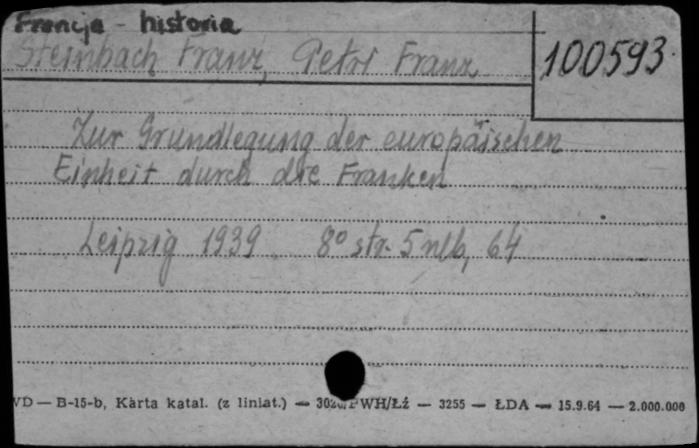 Francja - historia
Steinbach Franz, Petri Franz
100593
Zur Grundlegung der europäischen
Einheit durch die Franken
Leipzig 1939 8° str. 5 nlb, 64
VD — B-15-b, Karta katal. (z liniat.) — PWH/Łź — 3255 — ŁDA — 15.9.64 — 2.000.000